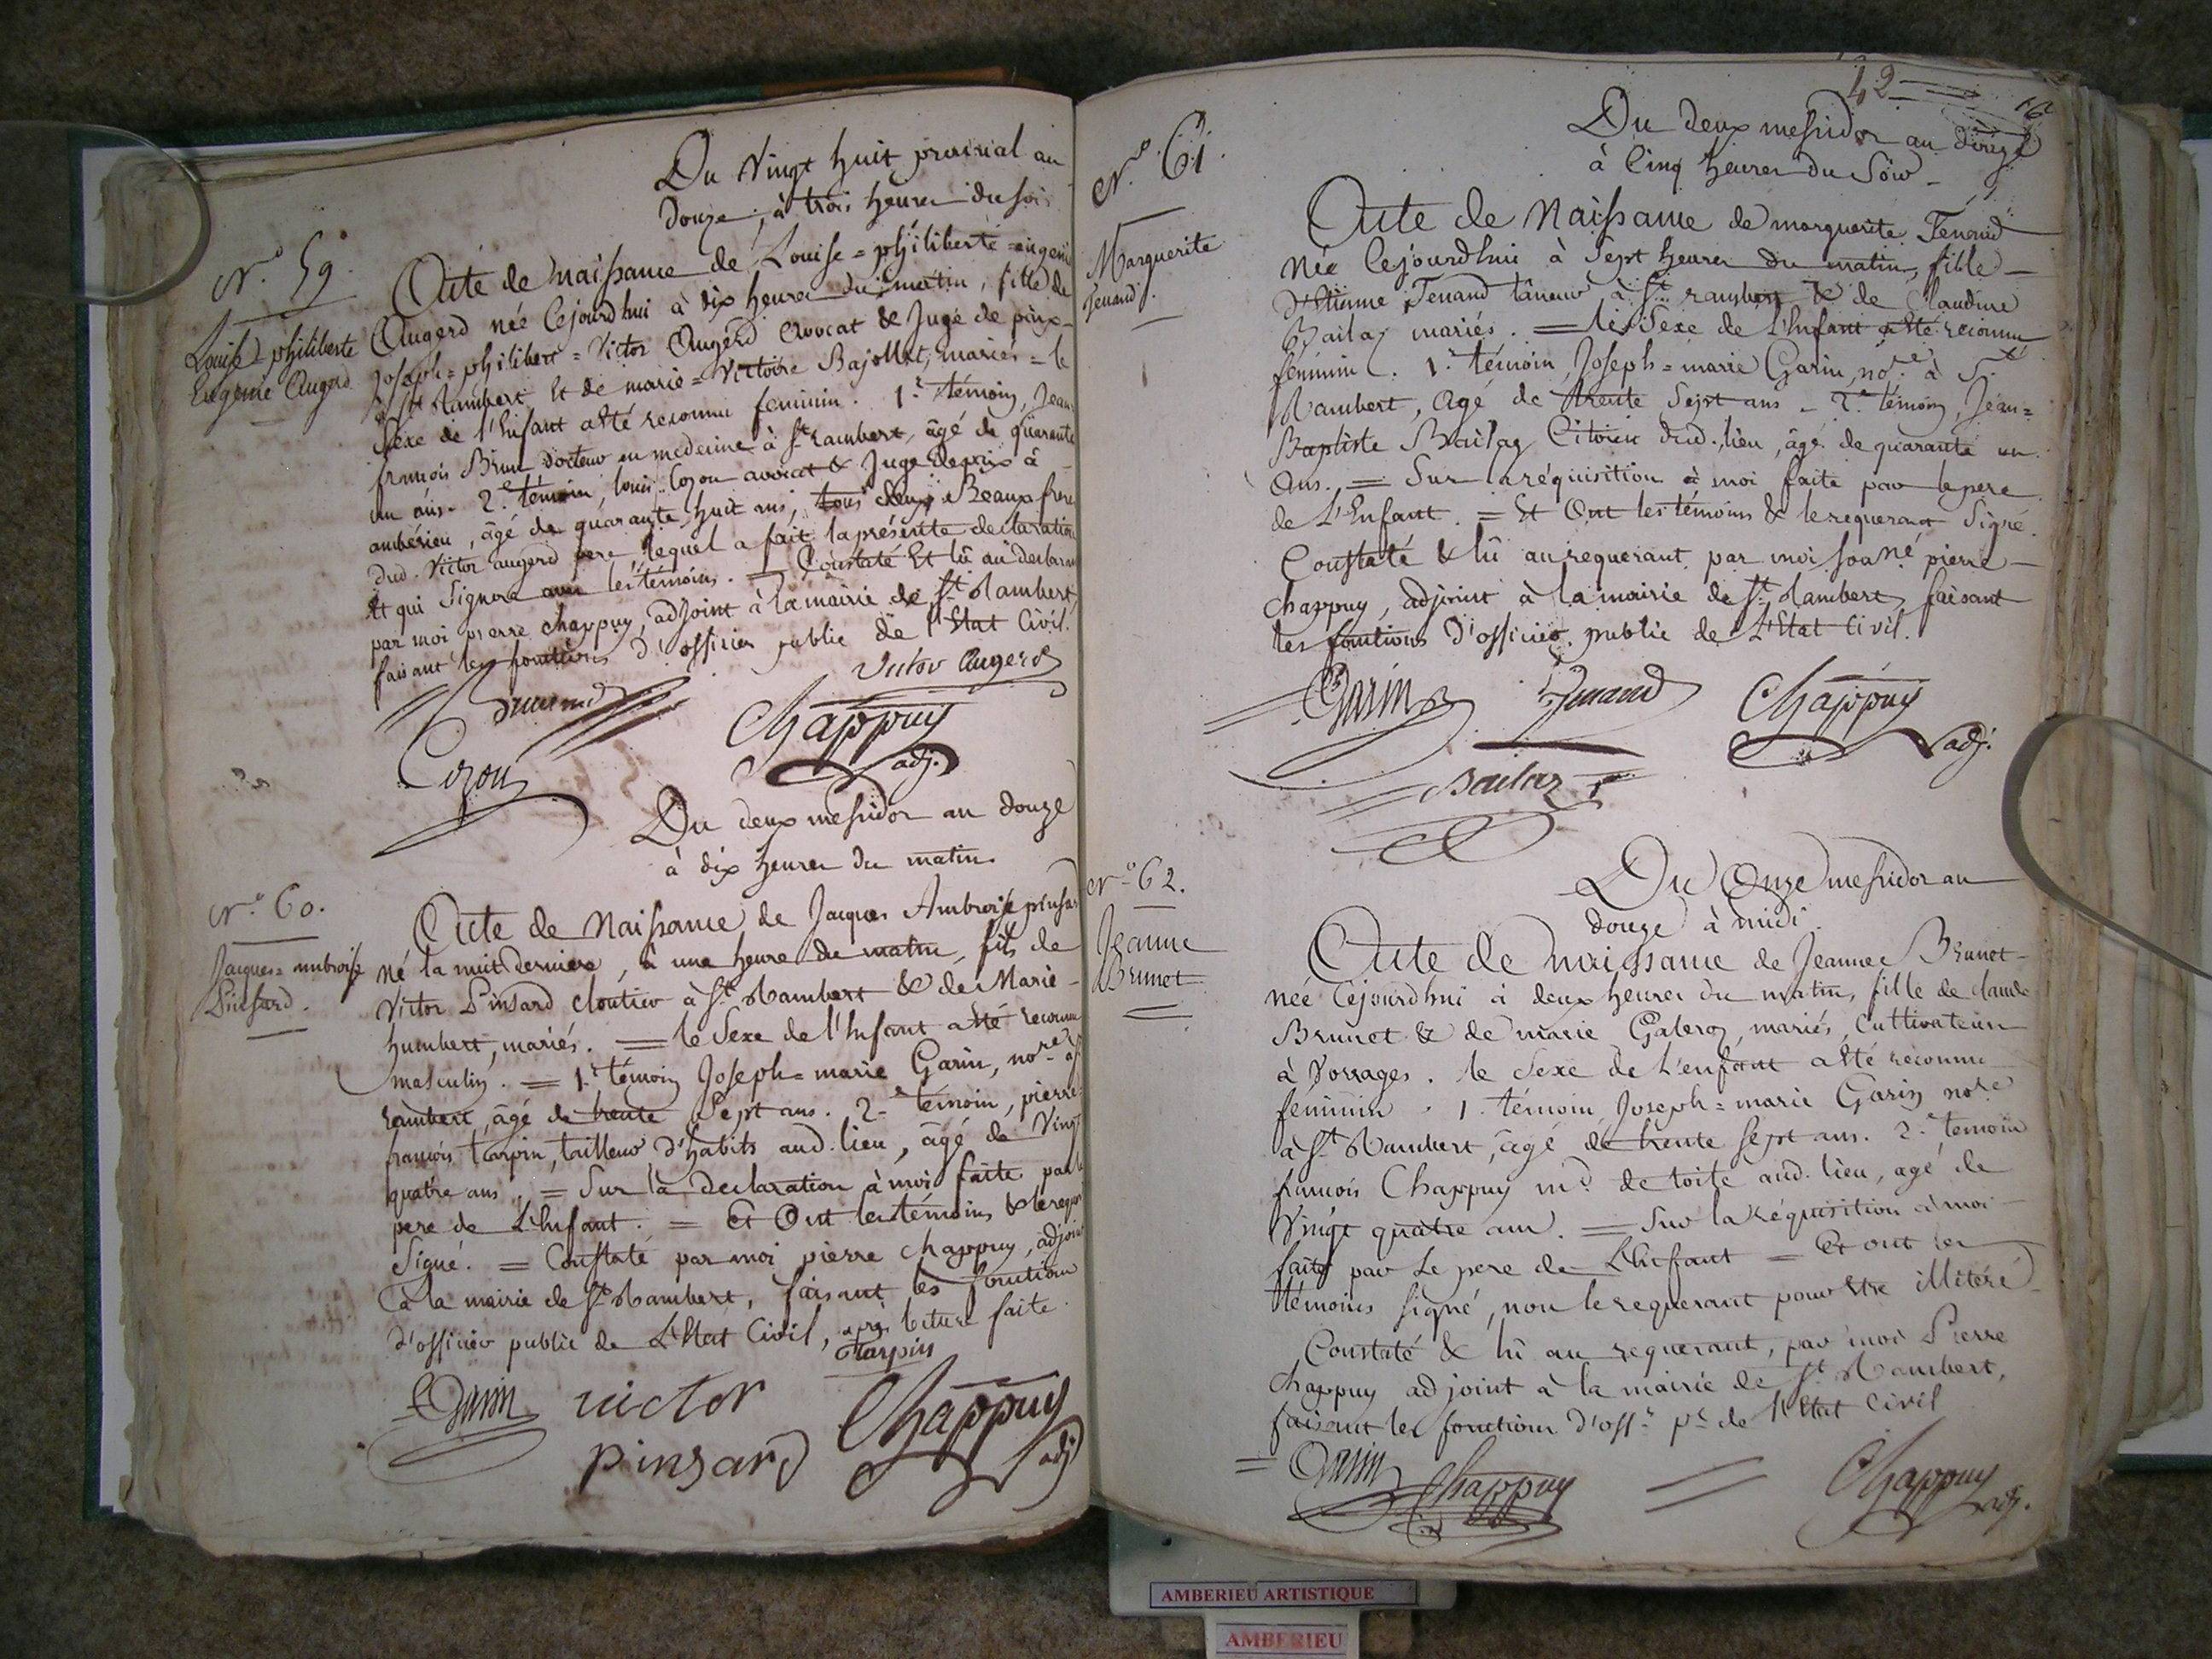 Du Vingt huit prairial an
Douze, à trois heures du soir
N.o 59.
Louise = philiberte
Eugenie Augerd
Acte de Naissance de Louise = philiberte = eugenie
Augerd née Cejourdhui à dix heures du matin, fille de
Joseph = philibert = Victor Augerd avocat & Juge de paix
à St Rambert Et de marie = Victoire Bajollet, mariés = le
Sexe de l'Enfant a été reconnu feminin. 1.r témoin, Jean
françois Brun docteur en medecine à St Rambert, âgé de quarante
un ans. 2.e témoin, louis Cozon avocat & Juge depaix à
ambérieu, âgé de quarante huit ans, tous deux Beaux freres
dud. Victor augerd pere lequel a fait la présente declaration
Et qui Signera avec les témoins. = Constaté Et lû au declarant
par moi pierre chappuy, adjoint à la mairie de St Rambert,
faisant les fonctions d'officier public de l'Etat Civil.
Victor Augerd
Cozon
Chappuy
adj.
Du deux messidor an douze
à dix heures du matin
N.o 60.
Jacques = ambroise
Pinsard.
Acte de Naissance de Jacques Ambroise pinsard
né la nuit derniere, à une heure du matin, fils de
Victor Pinsard cloutier à St Rambert & de Marie
humbert, mariés. = le Sexe de l'Enfant a été reconnu
masculin. = 1.r témoin Joseph = marie Garin, no.re à St
rambert, âgé de trente Sept ans. 2.e témoin, pierre
françois tarpin, tailleur d'habits aud. lieu, âgé de Vingt
quatre ans. = Sur la declaration à moi faite par le
pere de L'Enfant. = Et Ont les témoins & le requer.t
Signé. = Constaté par moi pierre chappuy, adjoint
à la mairie de St Rambert, faisant les fonctions
d'officier public de L'Etat Civil, après lecture faite.
Tarpin
Garin
victor
pinsard
Chappuy
adj
42
Du deux messidor an douze
à Cinq heures du Soir
N.o 61.
Marguerite
Tenand.
Acte de Naissance de marguerite Tenand
Née Cejourdhui à Sept heures du matin, fille
d'Etienne Tenand tâneur à St rambert & de Claudine
Bailaz mariés. = le Sexe de L'Enfant a été reconnu
féminin. 1.r témoin Joseph = marie Garin, no.re à St
Rambert, Agé de trente Sept ans = 2.e témoin, Jean =
Baptiste Bailaz Citoien dud. lieu, âgé de quarante un
Ans. = Sur la réquisition à moi faite par le pere
de L'Enfant. = Et Ont les témoins & le requerant Signé.
Constaté & lû au requerant par moi sous.né pierre
chappuy, adjoint à la mairie de St Rambert, faisant
les fonctions d'officier public de L'Etat Civil.
Garin
Tenand
Chappuy
adj.
Bailaz
Du Onze messidor an
douze à midi
N.o 62.
Jeanne
Brunet
Acte de naissance de Jeanne Brunet
née Cejourdhui à deux heures du matin, fille de claude
Brunet & de marie Galeroz, mariés, Cultivateurs
à Vorrages. le Sexe de L'enfant a été reconnu
féminin. 1.r témoin Joseph = marie Garin no.re
à St Rambert, âgé de trente sept ans. 2.e témoin
francois Chappuy m.d de toile aud. lieu, agé de
Vingt quatre ans. = Sur la réquisition à moi
faite par Le pere de L'Enfant = Et ont les
témoins signé, non le requerant pour être illitéré
Constaté & lû au requerant, par moi Pierre
Chappuy adjoint à la mairie de St Rambert,
faisant les fonctions d'off.r p.c de l'Etat Civil
Garin
Chappuy
Chappuy
adj.
AMBERIEU ARTISTIQUE
AMBERIEU